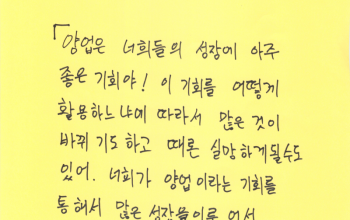 「양업은 너희들의 성장에 아주
좋은 기회야! 이 기회를 어떻게
활용하느냐에 따라서 많은 것이
바뀌기도 하고 때론 실망하게될수도
있어. 너희가 양업이라는 기회를
통해서 많은 성장을이루어서